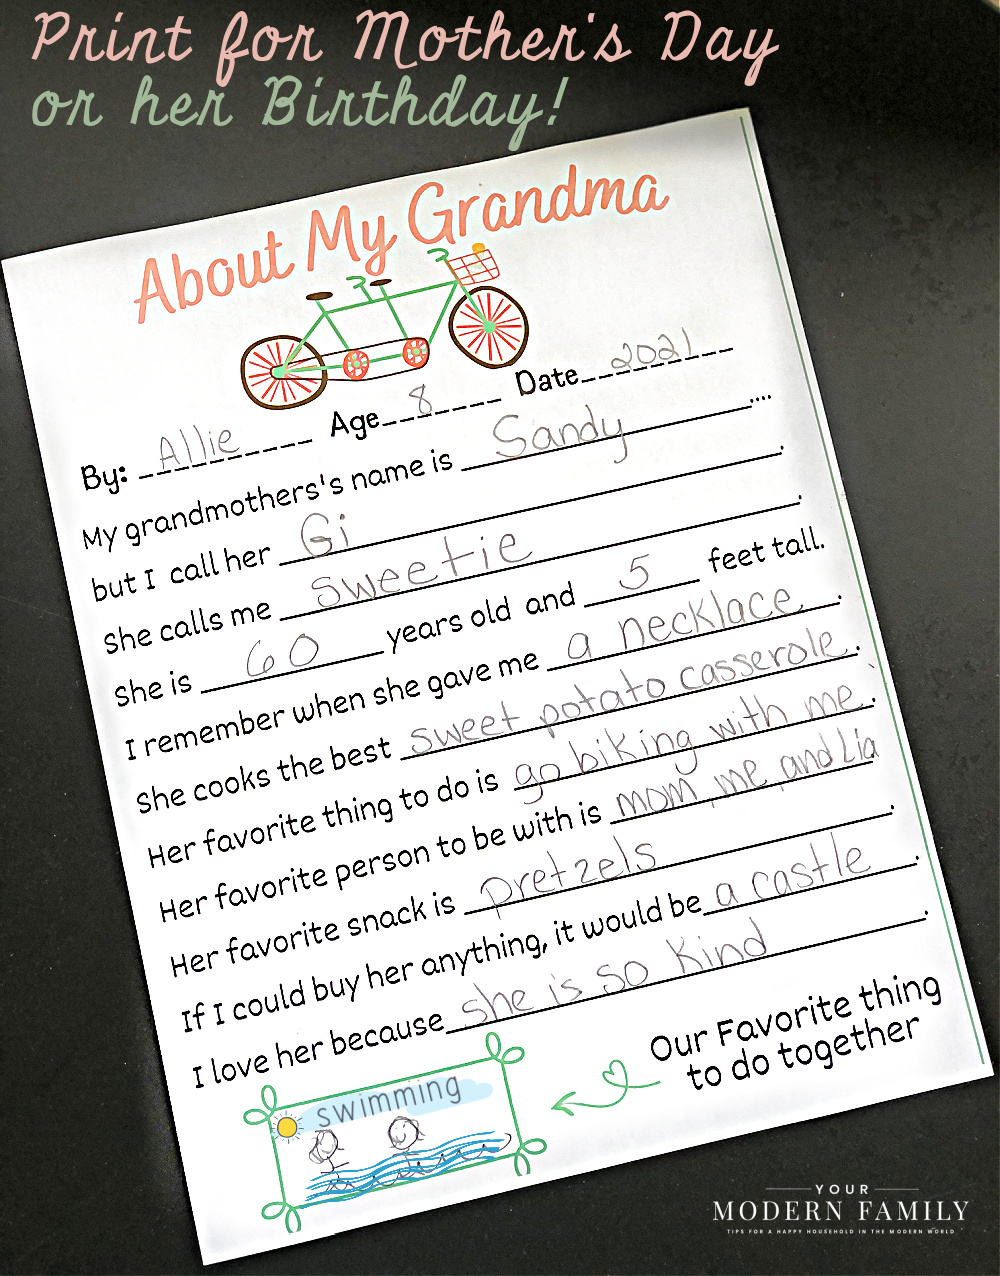 Print for Mother's Day
or her Birthday!
About My Grandma
By: Allie Age 8 Date 2021
My grandmothers's name is Sandy ....
but I call her Gi.
She calls me sweetie.
She is 60 years old and 5 feet tall.
I remember when she gave me a necklace.
She cooks the best sweet potato casserole.
Her favorite thing to do is go biking with me.
Her favorite person to be with is mom, me, and Lia
Her favorite snack is pretzels.
If I could buy her anything, it would be a castle.
I love her because she is so kind.
Our Favorite thing
to do together
swimming
YOUR
MODERN FAMILY
TIPS FOR A HAPPY HOUSEHOLD IN THE MODERN WORLD